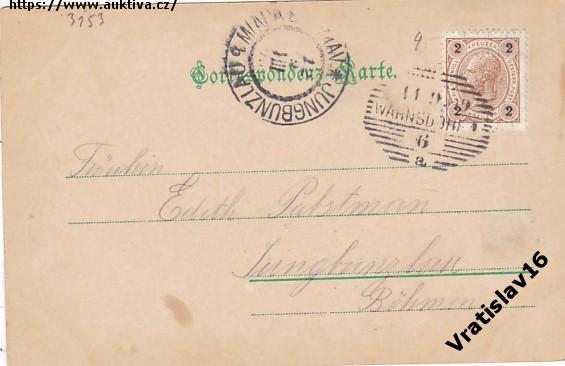 https://www.auktiva.cz/
3153
9
2 KREUZER 2
2 2
Correspondenz-Karte.
JUNGBUNZLAU
WARNSDORF
6
a
Fräulein
Edith Pabstmann
Jungbunzlau
Böhmen
Vratislav16